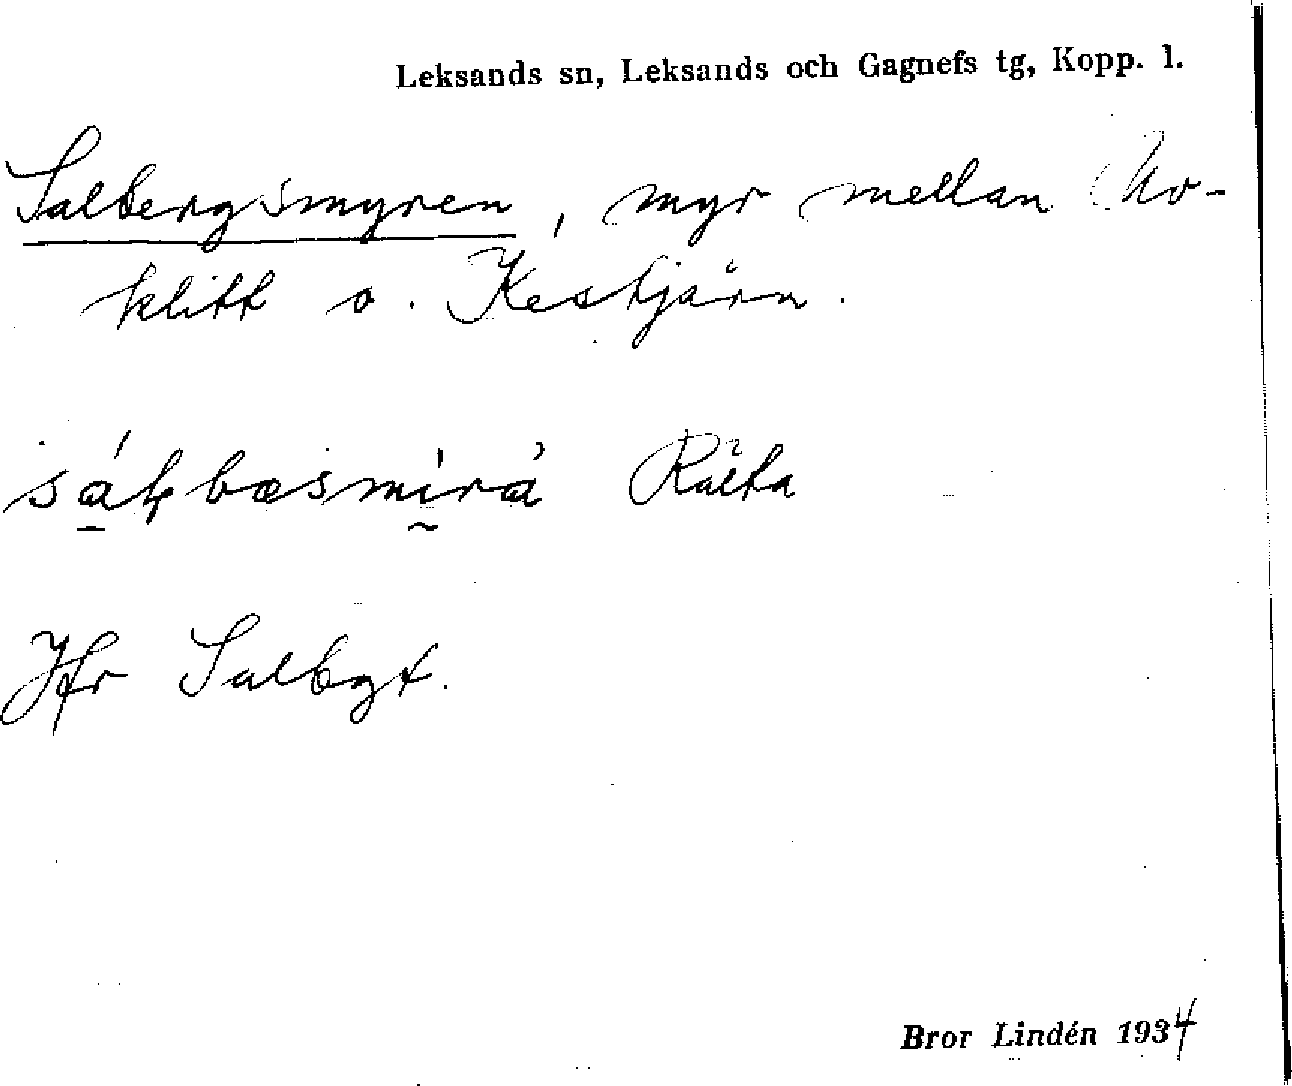 Leksands sn, Leksands och Gagnefs tg, Kopp. l.
Salbergsmyren, myr mellan
klitt o. Kestjärn.
Rälta
Jfr Salbgt.
Bror Lindén 1934